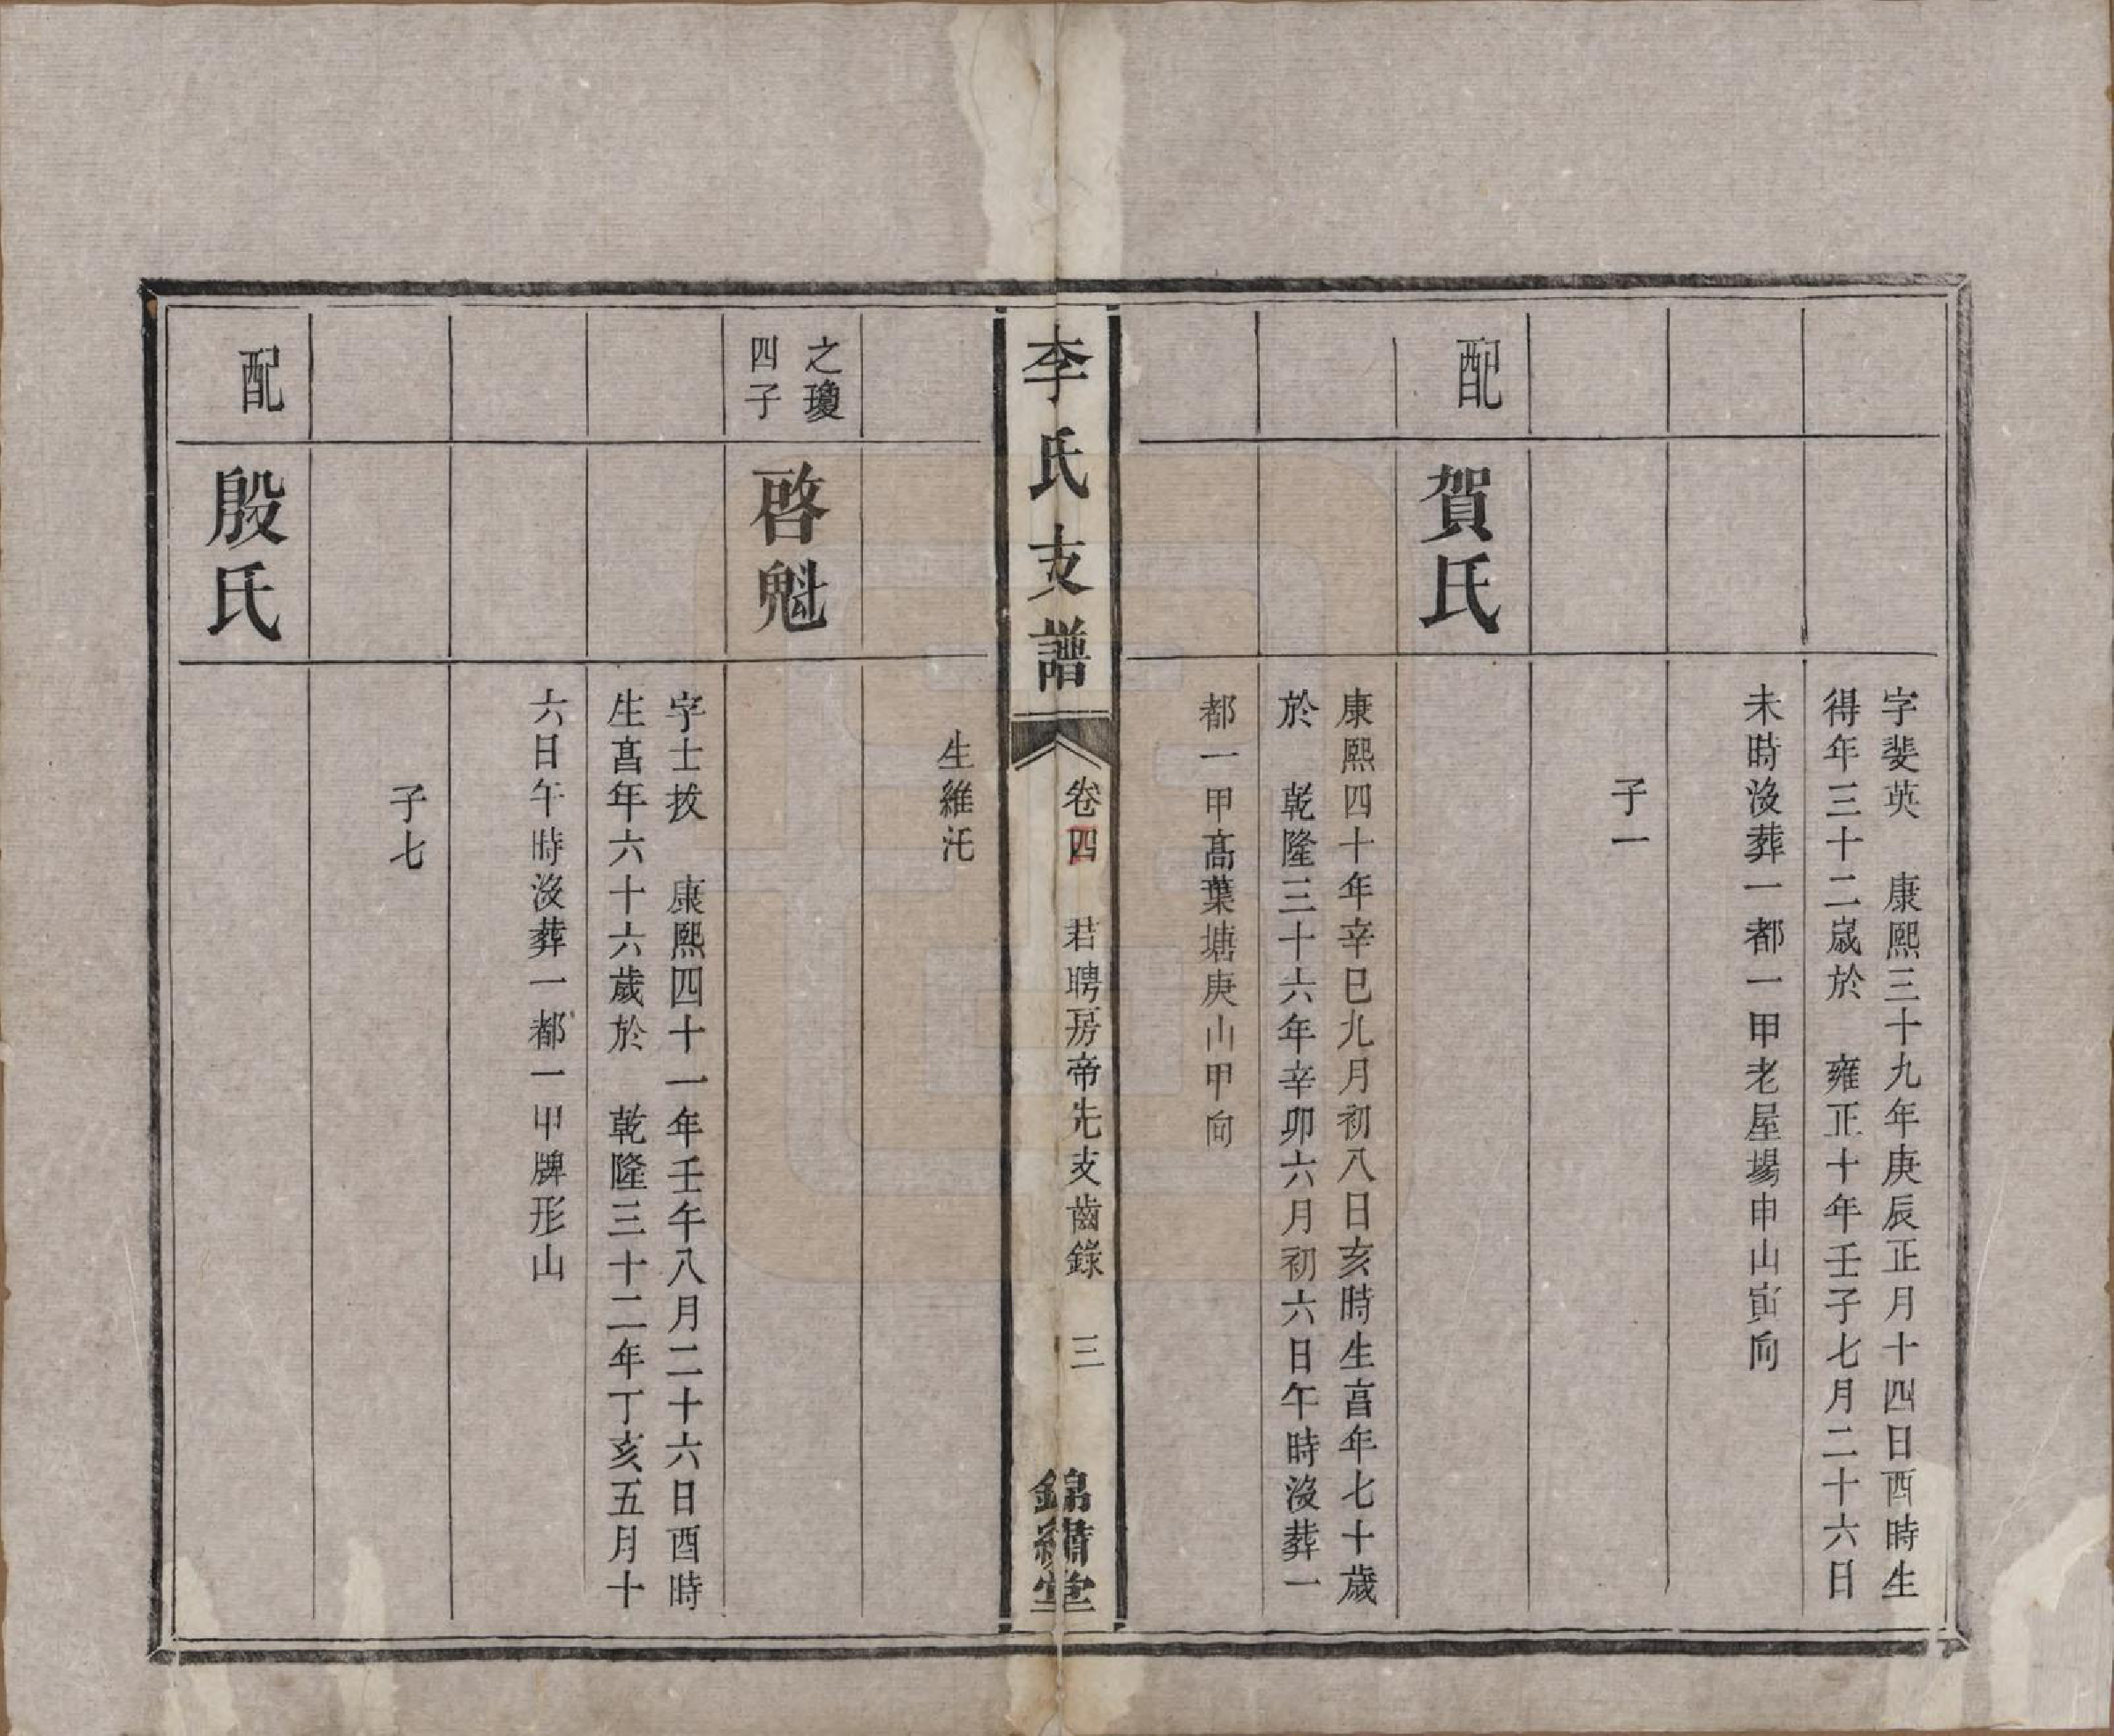 字斐英　康熙三十九年庚辰正月十四日酉時生
得年三十二歲於　雍正十年壬子七月二十六日
未時沒葬一都一甲老屋場申山寅向
子一
配
賀氏
康熙四十年辛巳九月初八日亥時生亯年七十歲
於　乾隆三十六年辛卯六月初六日午時沒葬一
都一甲髙葉塘庚山甲向
李氏支譜
卷四　君聘房帝先支齒錄　三
錦繡堂
生維汑
之瓊
四子
啓魁
字士扙　康熙四十一年壬午八月二十六日酉時
生亯年六十六歲於　乾隆三十二年丁亥五月十
六日午時沒葬一都一甲牌形山
子七
配
殷氏